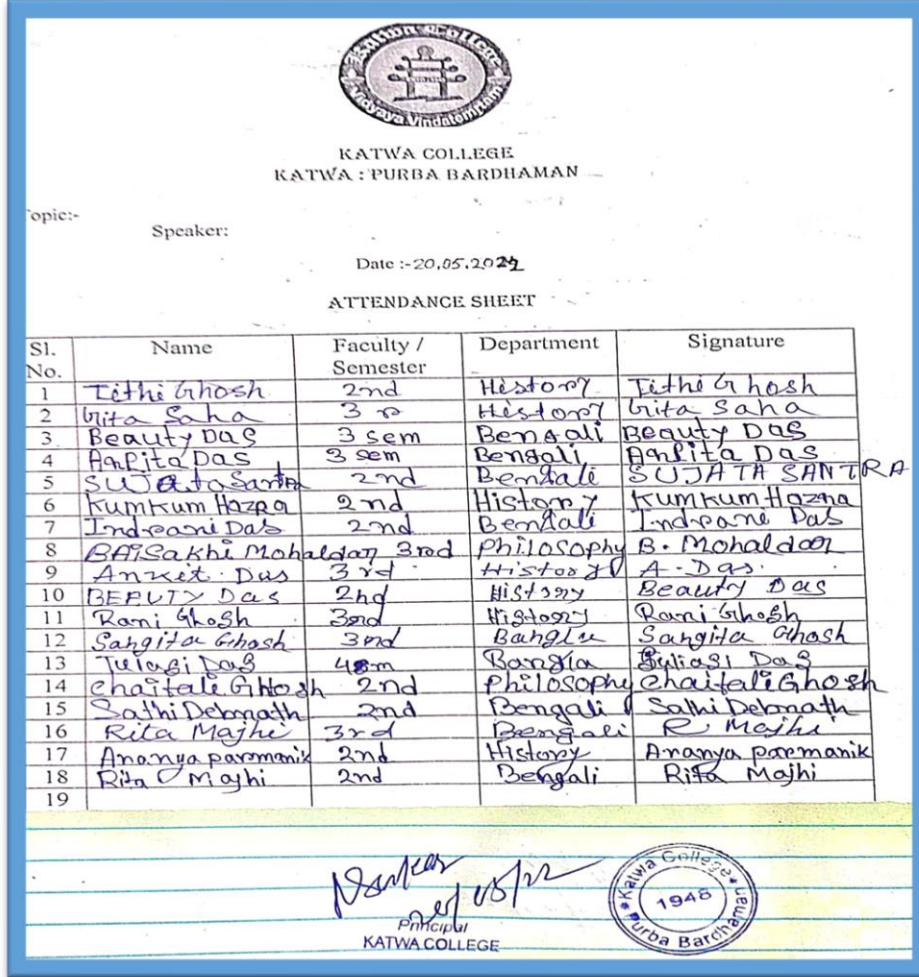 Katwa College
Vidyaya Vindatomritam
KATWA COLLEGE
KATWA : PURBA BARDHAMAN
Topic:-
Speaker:
Date :-20.05.2022
ATTENDANCE SHEET
Sl. No. Name Faculty / Semester Department Signature
1 Tithi Ghosh 2nd History Tithi Ghosh
2 Gita Saha 3 History Gita Saha
3 Beauty Das 3 sem Bengali Beauty Das
4 Anpita Das 3 sem Bengali Anpita Das
5 Sujata Santra 2nd Bengali SUJATA SANTRA
6 Kumkum Hazra 2nd History Kumkum Hazra
7 Indrani Das 2nd Bengali Indrani Das
8 BAiSakhi Mohaldar 3rd Philosophy B. Mohaldar
9 Ankit. Das 3rd History A. Das.
10 BEAUTY Das 2nd History Beauty Das
11 Rani Ghosh 3rd History Rani Ghosh
12 Sangita Ghosh 3rd Bangla Sangita Ghosh
13 Tulasi Das Bangla Das
14 Chaitali GHosh 2nd Philosophy Chaitali Ghosh
15 Sathi Debnath 2nd Bengali Sathi Debnath
16 Rita Majhi 3rd Bengali R Majhi
17 Ananya paremanik 2nd History Ananya paremanik
18 Rita Majhi 2nd Bengali Rita Majhi
19
Principal
KATWA COLLEGE
Katwa College
1948
Purba Bardhaman